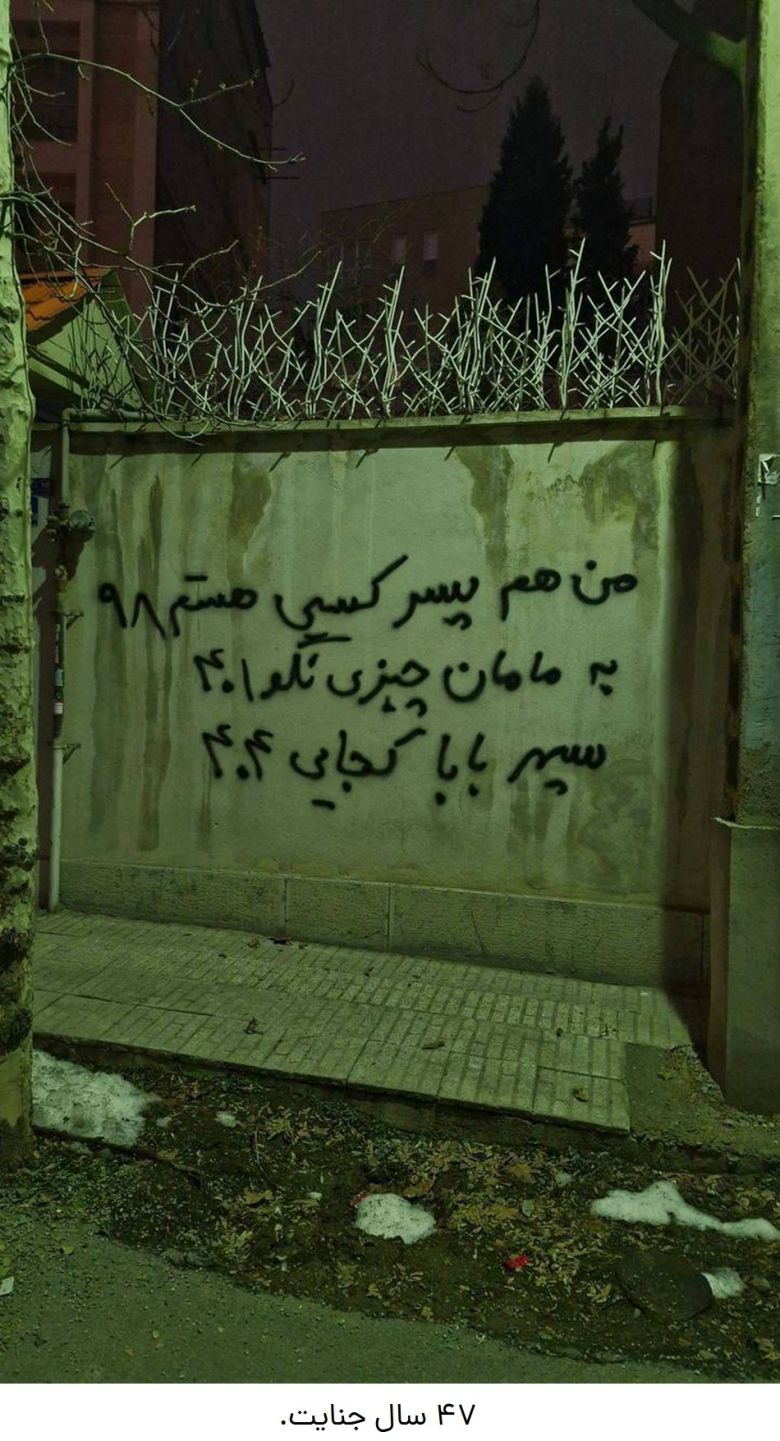 من هم پسر کسی هستم ۹۸
به مامان چیزی نگو ۴۰۱
سپهر بابا کجایی ۴۰۴
۴۷ سال جنایت.